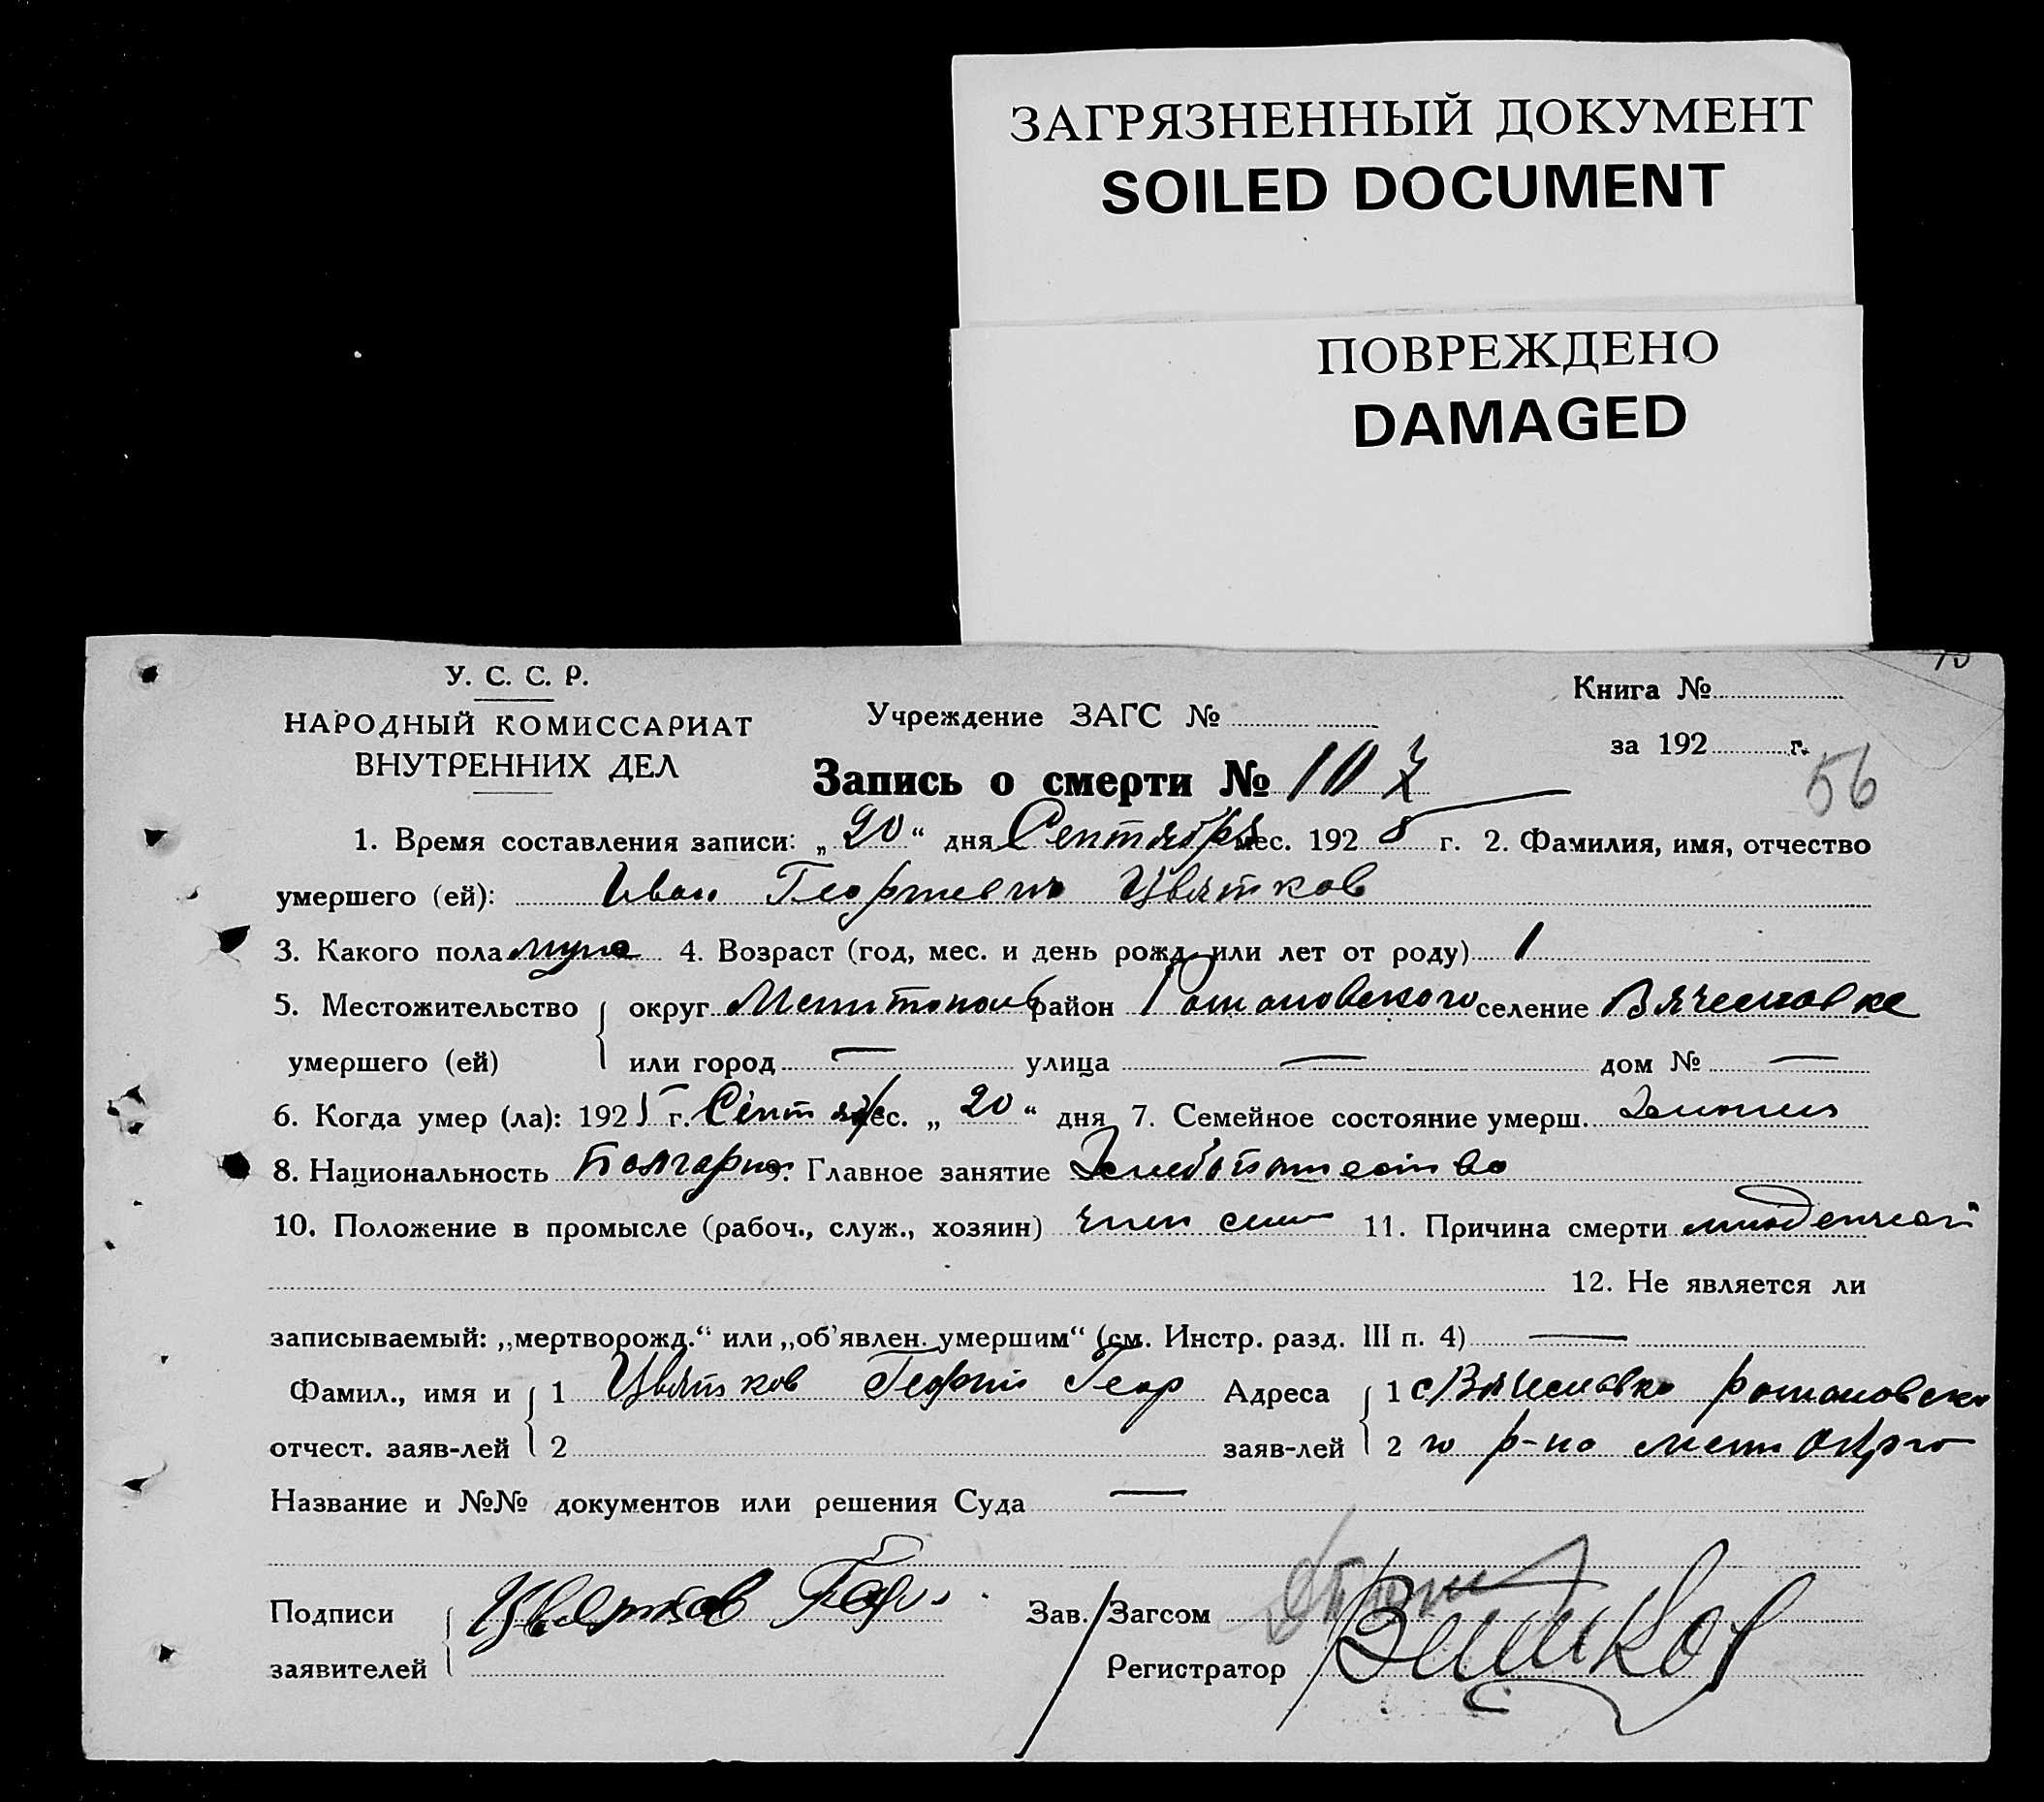 ЗАГРЯЗНЕННЫЙ ДОКУМЕНТ
SOILED DOCUMENT
ПОВРЕЖДЕНО
DAMAGED
У. С. С. Р.
НАРОДНЫЙ КОМИССАРИАТ
ВНУТРЕННИХ ДЕЛ
Учреждение ЗАГС №
Книга №
за 192 г.
56
Запись о смерти № 107
1. Время составления записи: „ 20 “ дня Сентября мес. 192 г. 2. Фамилия, имя, отчество
умершего (ей): Иван Георгиевич Цвятков
3. Какого пола муже 4. Возраст (год, мес. и день рожд. или лет от роду) 1
5. Местожительство округ Мелитополь район Романовского селение Вячеславка
умершего (ей) или город — улица — дом № —
6. Когда умер (ла): 192 г. Сентябр мес. „ 20 “ дня 7. Семейное состояние умерш.
8. Национальность Болгарин 9. Главное занятие
10. Положение в промысле (рабоч., служ., хозяин) член семьи 11. Причина смерти младенческой
12. Не является ли
записываемый: „мертворожд.“ или „об’явлен. умершим“ (см. Инстр. разд. III п. 4) —
Фамил., имя и 1 Цвятков Георгий Геор Адреса 1 с Вячеславка Романовско
отчест. заяв-лей 2 заяв-лей 2 го р-на мели Окр
Название и №№ документов или решения Суда —
Подписи Цвятков Зав. / Загсом
заявителей Регистратор